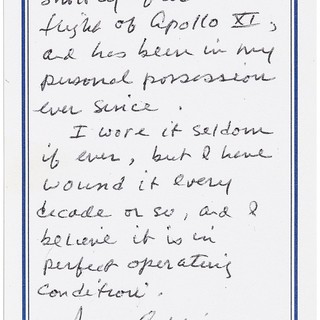 shortly
flight of Apollo XI,
and has been in my
personal possession
ever since.
I wore it seldom
if ever, but I have
wound it every
decade or so, and I
believe it is in
perfect operating
condition.